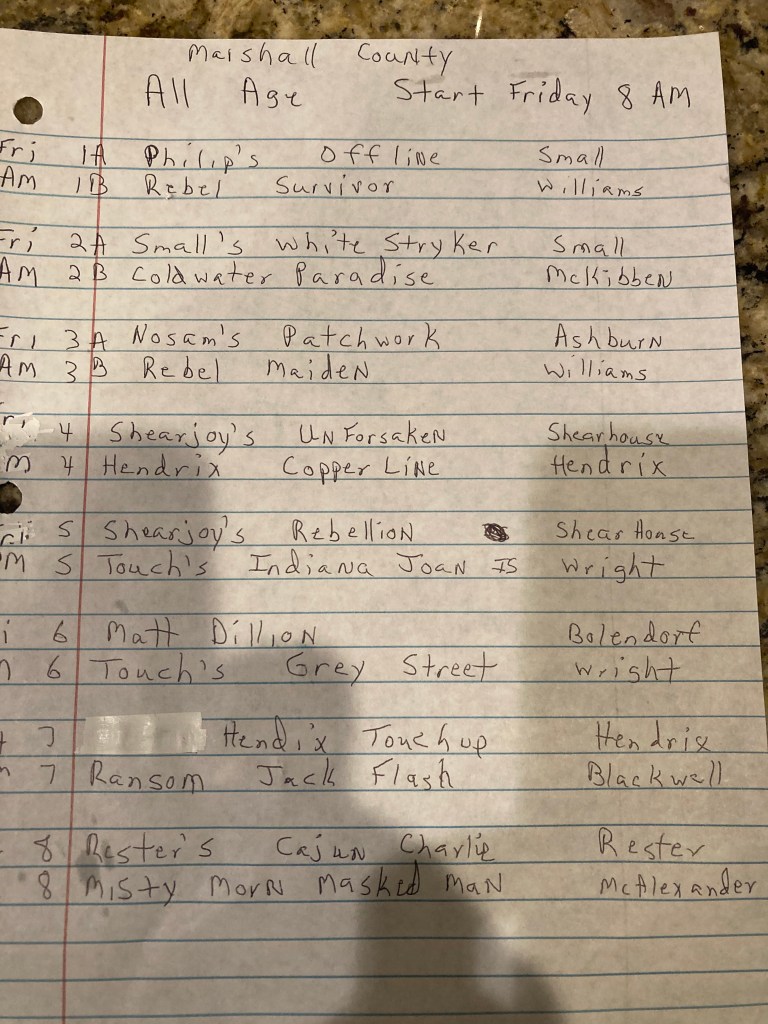 Marshall County
All Age Start Friday 8 AM
Fri 1A Philip's Offline Small
AM 1B Rebel Survivor Williams
Fri 2A Small's White Stryker Small
AM 2B Coldwater Paradise McKibben
Fri 3A Nosam's Patchwork Ashburn
AM 3B Rebel Maiden Williams
4 Shearjoy's UNForsaken Shearhouse
M 4 Hendrix Copper Line Hendrix
5 Shearjoy's Rebellion Shear House
M 5 Touch's Indiana Joan IS Wright
i 6 Matt Dillion Bolendorf
6 Touch's Grey Street Wright
7 Hendix Touchup Hendrix
7 Ransom Jack Flash Blackwell
8 Rester's Cajun Charlie Rester
8 Misty Morn Masked Man McAlexander